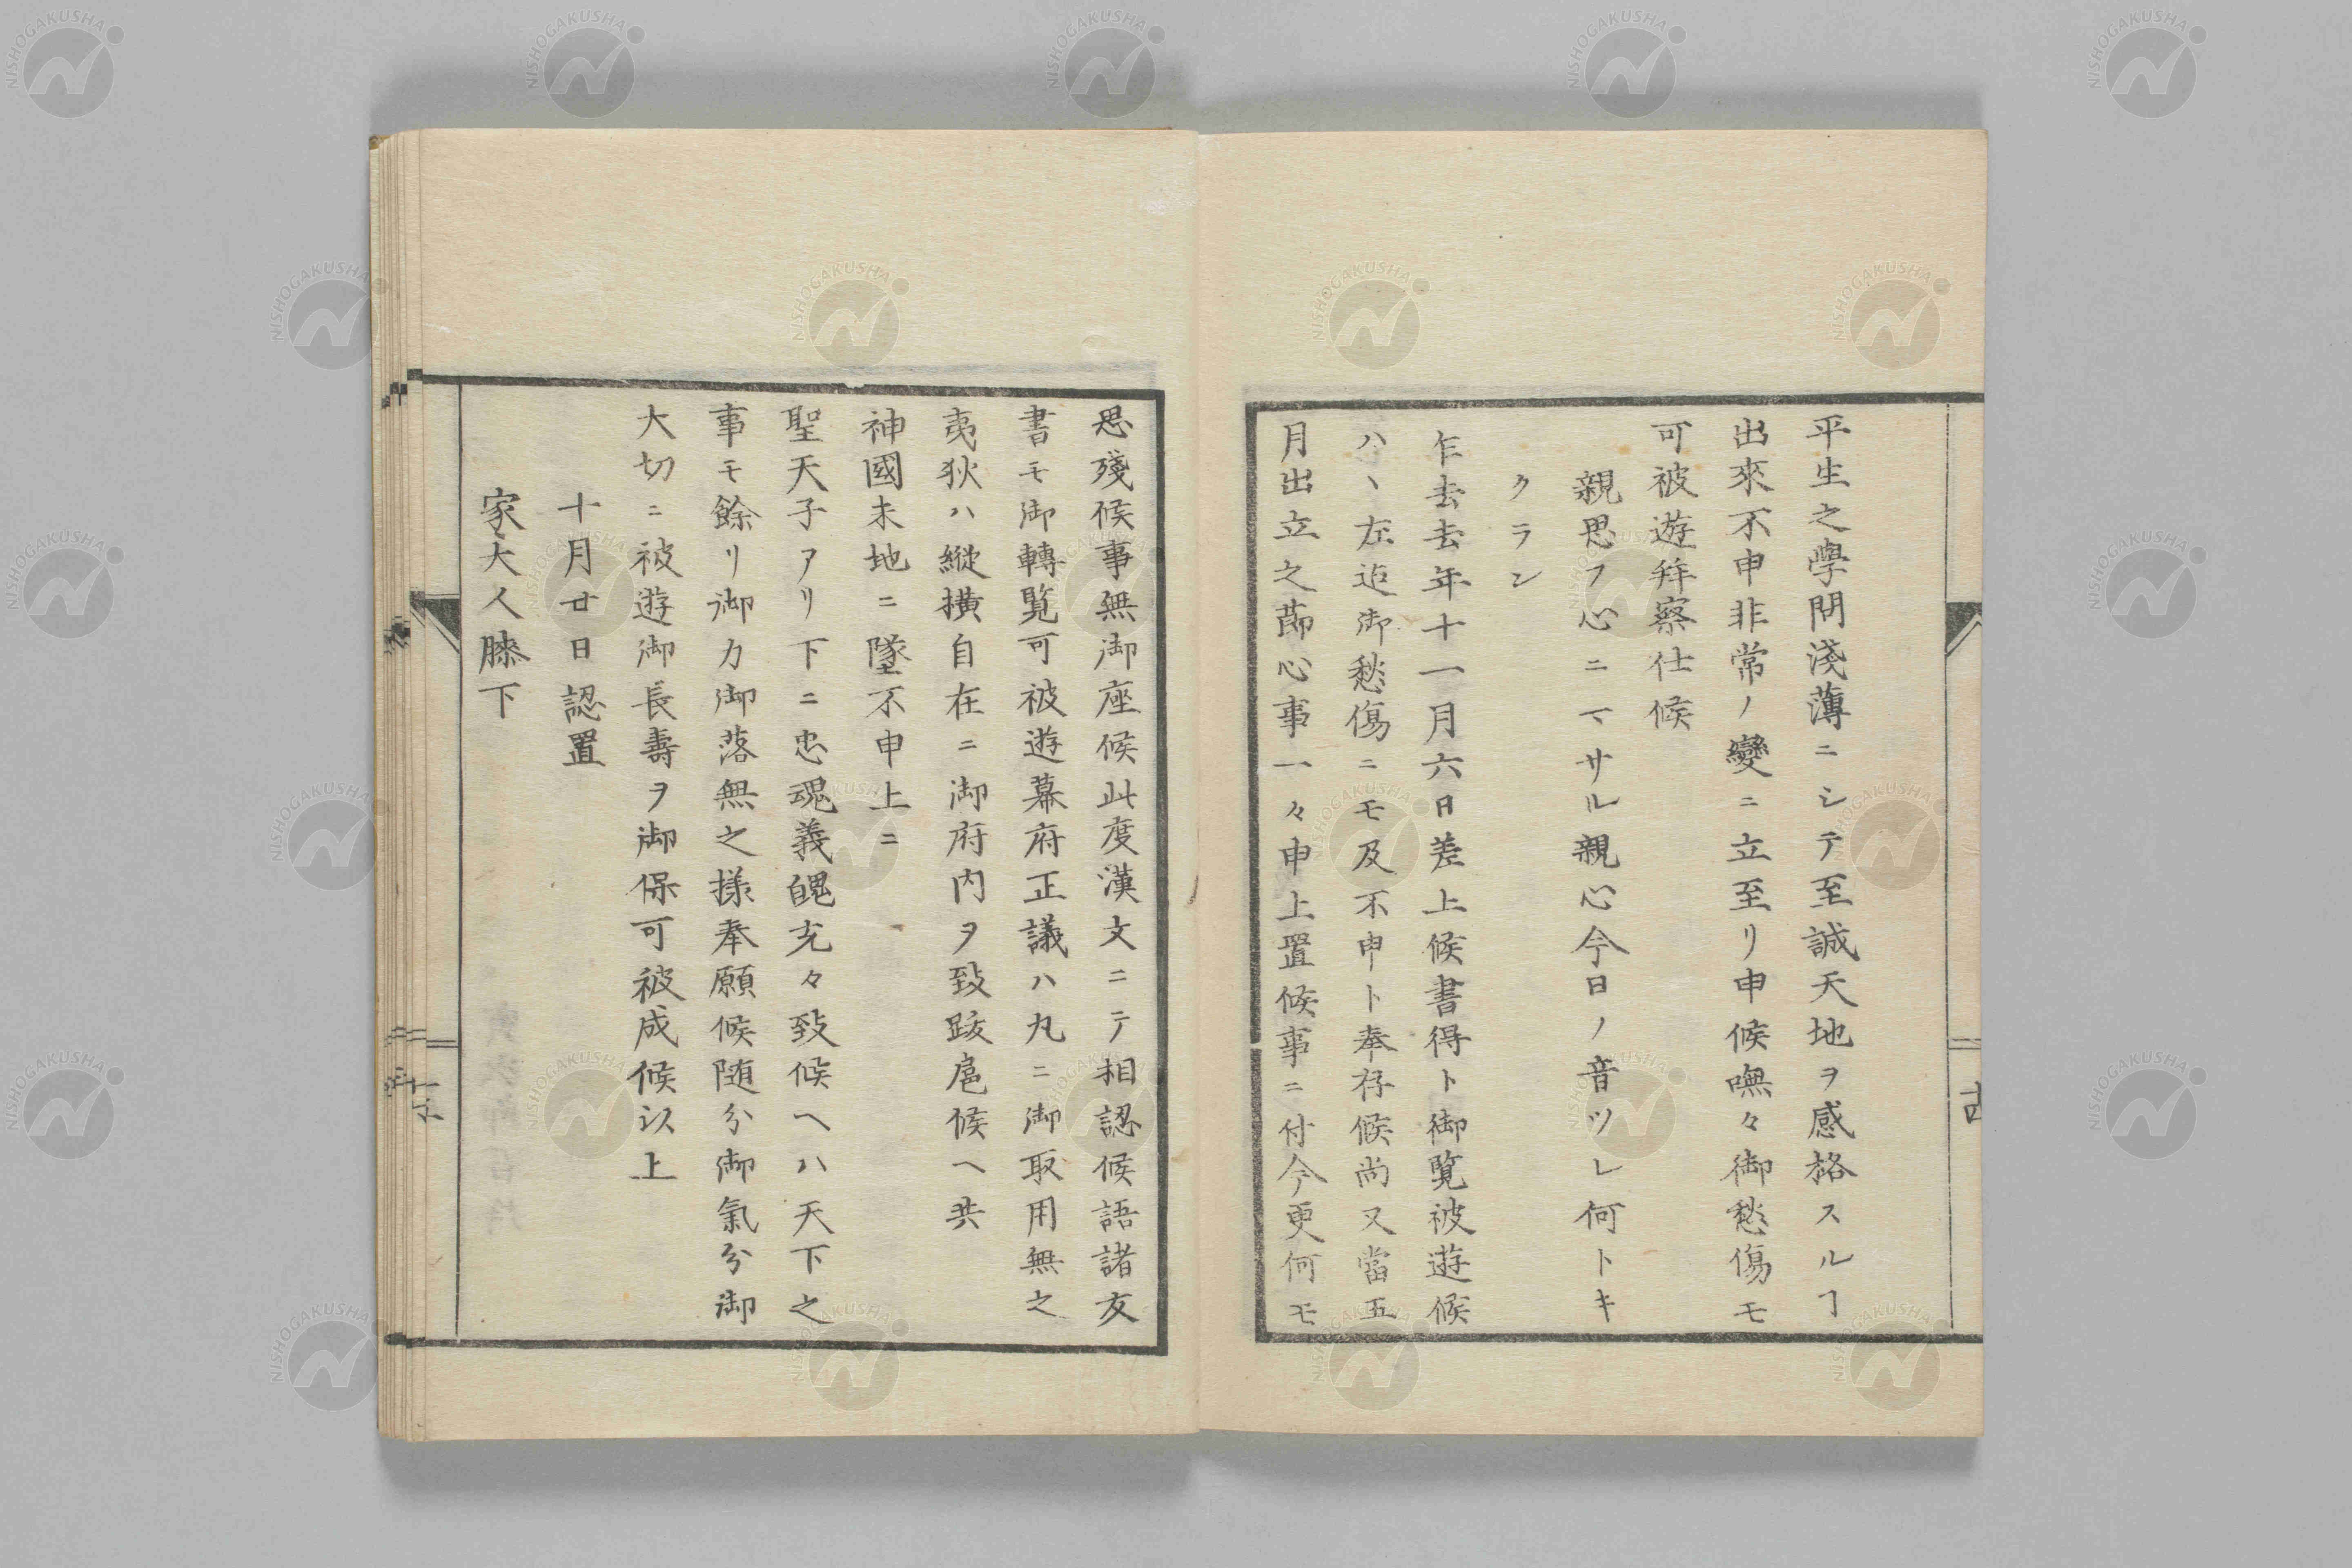 平生之學問淺薄ニシテ至誠天地ヲ感格スルヿ
出來不申非常ノ變ニ立至リ申候嘸々御愁傷モ
可被遊拜察仕候
親思フ心ニマサル親心今日ノ音ツレ何トキ
クラン
乍去去年十一月六日差上候書得ト御覽被遊候
ハヽ左迠御愁傷ニモ及不申ト奉存候尚又當五
月出立之莭心事一々申上置候事ニ付今更何モ
思殘候事無御座候此度漢文ニテ相認候語諸友
書モ御轉覽可被遊幕府正議ハ丸ニ御取用無之
夷狄ハ縱横自在ニ御府内ヲ致跋扈候ヘ共
神國未地ニ墜不申上ニ
聖天子アリ下ニ忠魂義魄充々致候ヘハ天下之
事モ餘リ御力御落無之様奉願候随分御氣分御
大切ニ被遊御長壽ヲ御保可被成候以上
十月廿日認置
家大人膝下
NISHOGAKUSHA